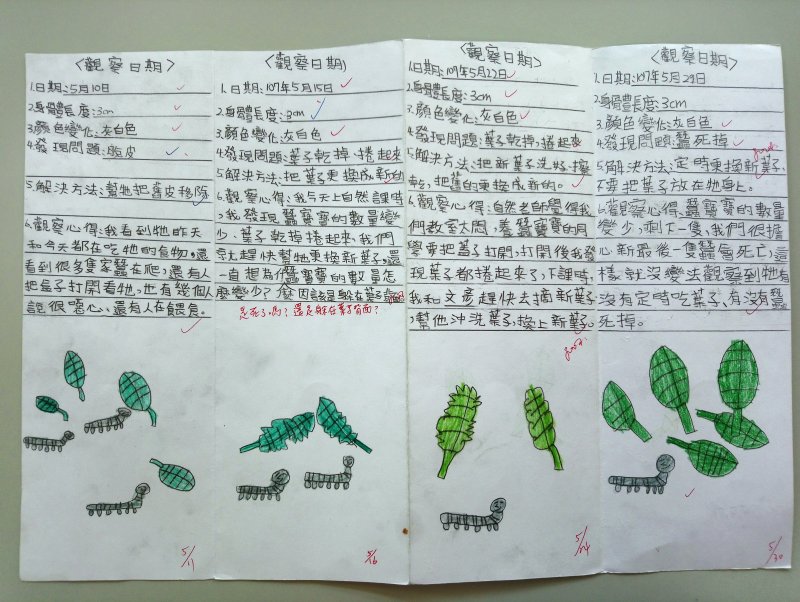 〈觀察日期〉
1.日期:5月10日
2.身體長度:3cm
3.顏色變化:灰白色
4.發現問題:脫皮
5.解決方法:幫牠把舊皮移除
6.觀察心得:我看到牠昨天
和今天都在吃牠的食物,還
看到很多隻家蠶在爬,還有人
把盒子打開看牠,也有幾個人
說很噁心、還有人在餵食。
5/11
〈觀察日期〉
1.日期:107年5月15日
2.身體長度:3cm
3.顏色變化:灰白色
4.發現問題:葉子乾掉,捲起來
5.解決方法:把葉子更換成新的
6.觀察心得:我今天上自然課時
,我發現蠶寶寶的數量變
少、葉子乾掉捲起來,我們
就趕快幫牠更換新葉子,還
一直想為何蠶寶寶的數量怎
麼變少?
是死了嗎?還是躲在葉子背面?
5/16
〈觀察日期〉
1.日期:107年5月22日
2.身體長度:3cm
3.顏色變化:灰白色
4.發現問題:葉子乾掉,捲起來
5.解決方法:把新葉子洗好,擦
乾,把舊的更換成新的。
6.觀察心得:自然老師覺得我
們教室太悶,養蠶寶寶的同
學要把蓋子打開,打開後我發
現葉子都捲起來了,下課時,
我和文彥趕快去摘新葉子
,幫他沖洗葉子,換上新葉子。
Good
5/24
〈觀察日期〉
1.日期:107年5月29日
2.身體長度:3cm
3.顏色變化:灰白色
4.發現問題:蠶死掉
Good
5.解決方法:定時更換新葉子,
不要把葉子放在牠身上。
6.觀察心得:蠶寶寶的數量
變少,剩下一隻,我們很擔
心新最後一隻蠶會死亡,這
樣就沒辦法觀察到牠有
沒有定時吃葉子、有沒有蠶
死掉。
5/30